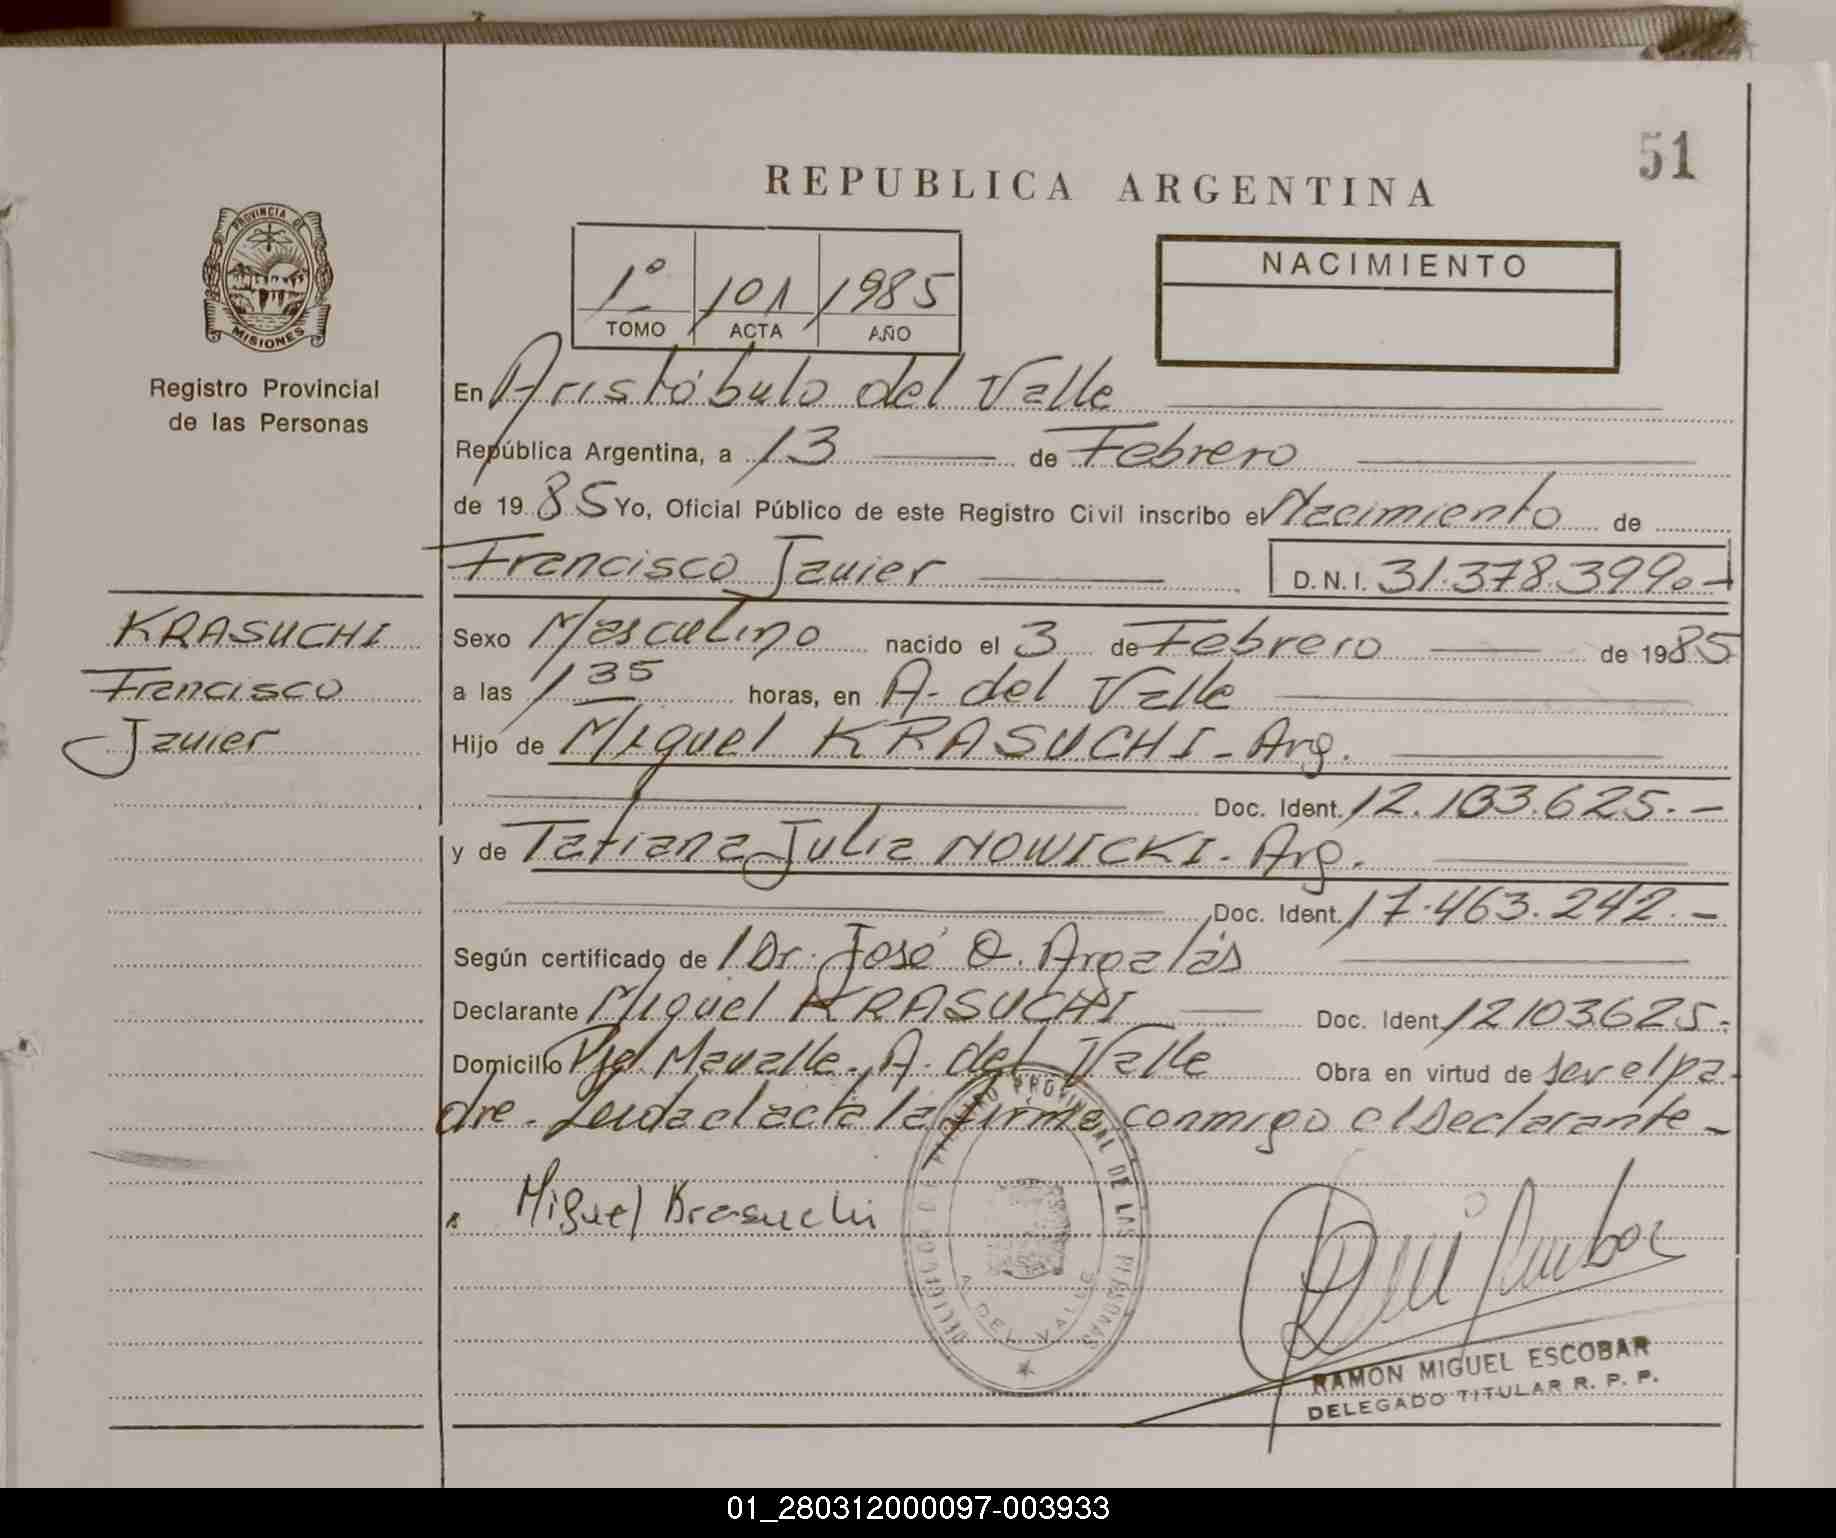 51
REPUBLICA ARGENTINA
PROVINCIA DE
MISIONES
Registro Provincial
de las Personas
1º 101 1985
TOMO ACTA AÑO
NACIMIENTO
En Aristóbulo del Valle
República Argentina, a 13 de Febrero
de 1985 Yo, Oficial Público de este Registro Civil inscribo el Nacimiento de
Francisco Javier D.N.I. 31.378.399.-
KRASUCHI
Francisco
Javier
Sexo Masculino nacido el 3 de Febrero de 1985
a las 1 35 horas, en A. del Valle
Hijo de Miguel KRASUCHI - Arg.
Doc. Ident. 12.103.625.-
y de Tatiana Julia NOWICKI - Arg.
Doc. Ident. 17.463.242.-
Según certificado de Dr. José O.
Declarante Miguel KRASUCHI Doc. Ident. 12103625.-
Domicilio Pje. Mavalle - A. del Valle Obra en virtud de ser el pa-
dre. Leida el acta la firma conmigo el Declarante -
Miguel Krasuchi
PROVINCIAL DE LAS PERSONAS
A. DEL VALLE
RAMON MIGUEL ESCOBAR
DELEGADO TITULAR R. P. P.
01_280312000097-003933